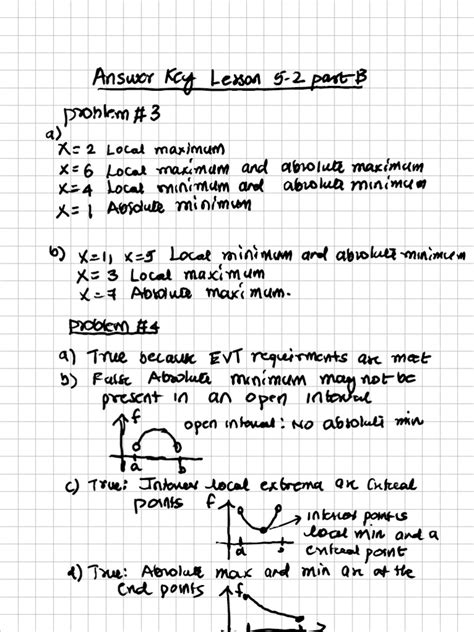 Answer Key Lesson 5-2 part B
problem #3
a)
x=2 Local maximum
x=6 Local maximum and absolute maximum
x=4 Local minimum and absolute minimum
x=1 Absolute minimum
b) x=1, x=5 Local minimum and absolute minimum
x=3 Local maximum
x=7 Absolute maximum.
problem #4
a) True because EVT requirments are meet
b) False Absolute minimum may not be
present in an open interval
f
open interval: No absolute min
a b
c) True: Interior local extrema are critical
points f
interior point is
local min and a
critical point
a b
d) True: Absolute max and min are at the
end points f